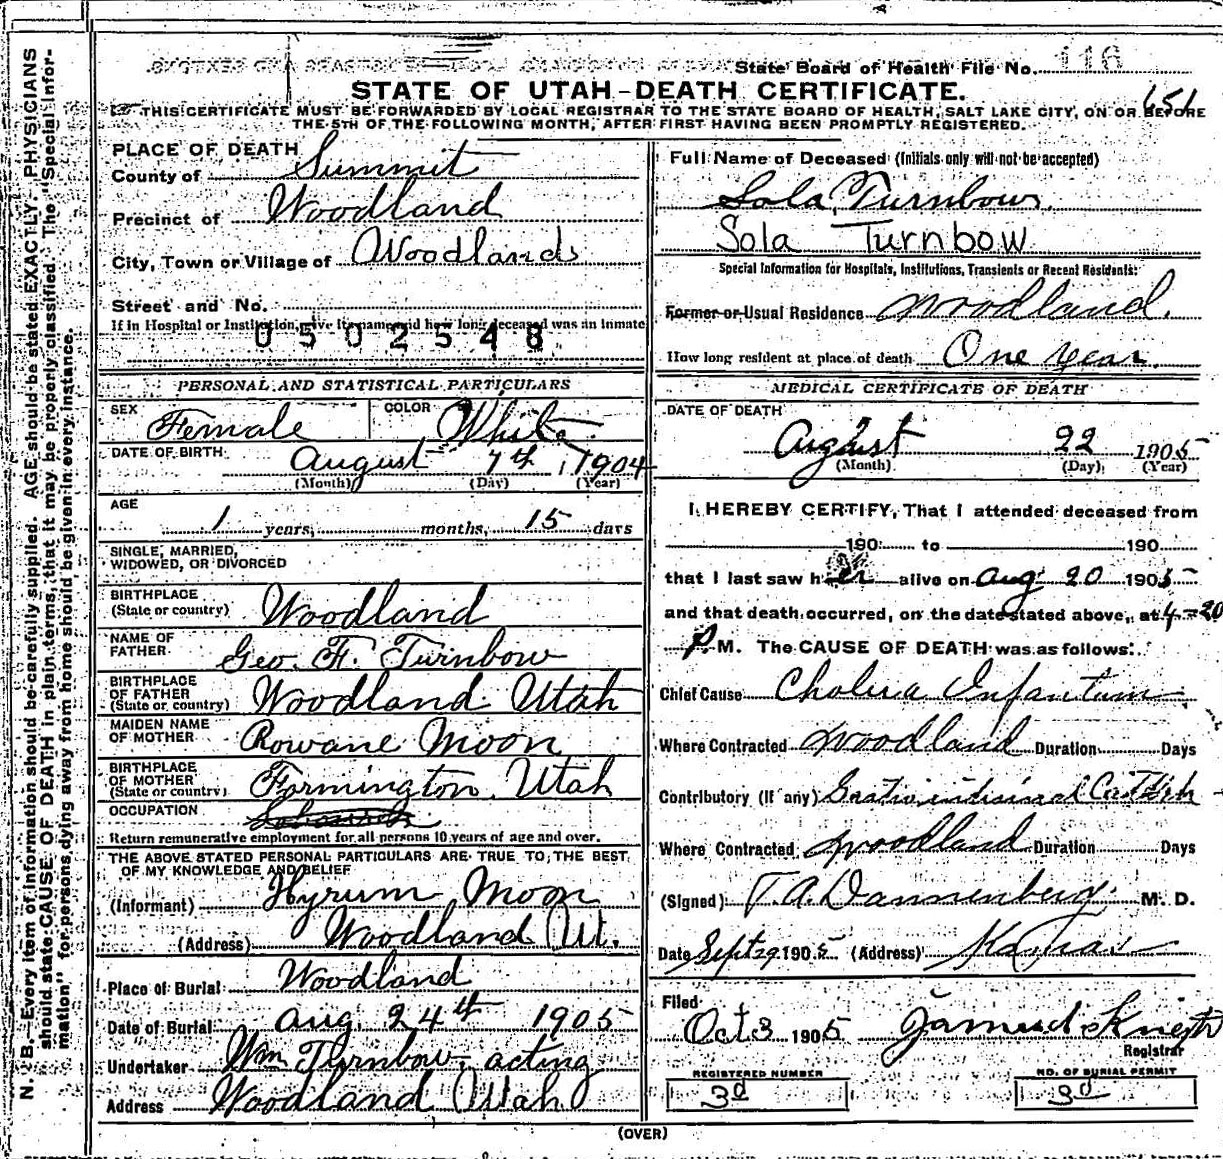 State Board of Health File No. 116
STATE OF UTAH-DEATH CERTIFICATE.
651
THIS CERTIFICATE MUST BE FORWARDED BY LOCAL REGISTRAR TO THE STATE BOARD OF HEALTH, SALT LAKE CITY, ON OR BEFORE
THE 5TH OF THE FOLLOWING MONTH, AFTER FIRST HAVING BEEN PROMPTLY REGISTERED.
N. B.—Every item of information should be carefully supplied. AGE should be stated EXACTLY. PHYSICIANS
should state CAUSE OF DEATH in plain terms, that it may be properly classified. The "Special Infor-
mation" for persons dying away from home should be given in every instance.
PLACE OF DEATH
County of Summit
Precinct of Woodland
City, Town or Village of Woodland
Street and No.
If in Hospital or Institution, give its name and how long deceased was an inmate
0502548
Full Name of Deceased (Initials only will not be accepted)
Sola Turnbow
Sola Turnbow
Special Information for Hospitals, Institutions, Transients or Recent Residents:
Former or Usual Residence Woodland.
How long resident at place of death One year
PERSONAL AND STATISTICAL PARTICULARS
SEX Female COLOR White
DATE OF BIRTH August 7th, 1904
(Month) (Day) (Year)
AGE
1 years, months, 15 days
SINGLE, MARRIED,
WIDOWED, OR DIVORCED
BIRTHPLACE
(State or country) Woodland
NAME OF
FATHER Geo. F. Turnbow
BIRTHPLACE
OF FATHER
(State or country) Woodland Utah
MAIDEN NAME
OF MOTHER Rowane Moon
BIRTHPLACE
OF MOTHER
(State or country) Farmington, Utah
OCCUPATION
Return remunerative employment for all persons 10 years of age and over.
THE ABOVE STATED PERSONAL PARTICULARS ARE TRUE TO THE BEST
OF MY KNOWLEDGE AND BELIEF
(Informant) Hyrum Moon
(Address) Woodland Ut.
Place of Burial Woodland
Date of Burial Aug. 24th 1905
Undertaker Wm Turnbow, acting
Address Woodland Utah
MEDICAL CERTIFICATE OF DEATH
DATE OF DEATH
August 22 1905
(Month) (Day) (Year)
I HEREBY CERTIFY, That I attended deceased from
190 to 190
that I last saw her alive on Aug 20 1905
and that death occurred, on the date stated above, at 4-20
P.M. The CAUSE OF DEATH was as follows:
Chief Cause Cholera Infantum
Where Contracted Woodland Duration Days
Contributory (If any)
Where Contracted Woodland Duration Days
(Signed) T. A. Dannenberg M. D.
Date Sept 29 1905 (Address) Kamas
Filed
Oct 3 1905
Registrar
REGISTERED NUMBER
NO. OF BURIAL PERMIT
(OVER)